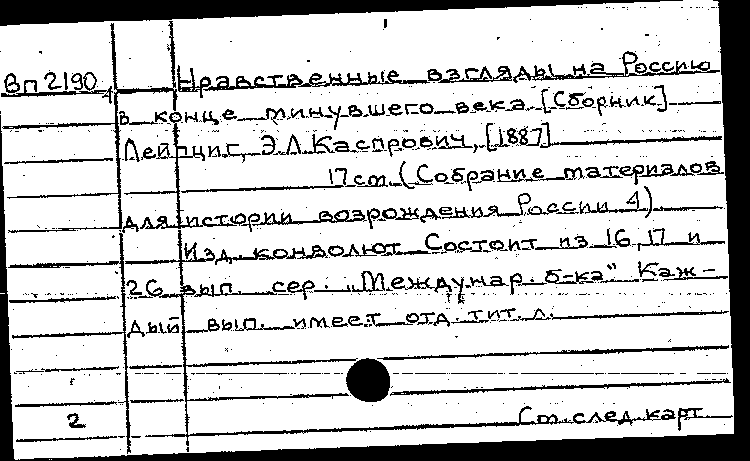 Вп 2190 Нравственные взгляды на Россию
4 в конце минувшего века [Сборник]
Лейпциг, Э.Л. Каспрович, [1887]
17 см. (Собрание материалов
для истории возрождения России 4)
Изд. конволют Состоит из 16, 17 и
26 вып. сер. „Междунар. б-ка" Каж-
дый вып. имеет отд. тит. л.
2 См. след. карт